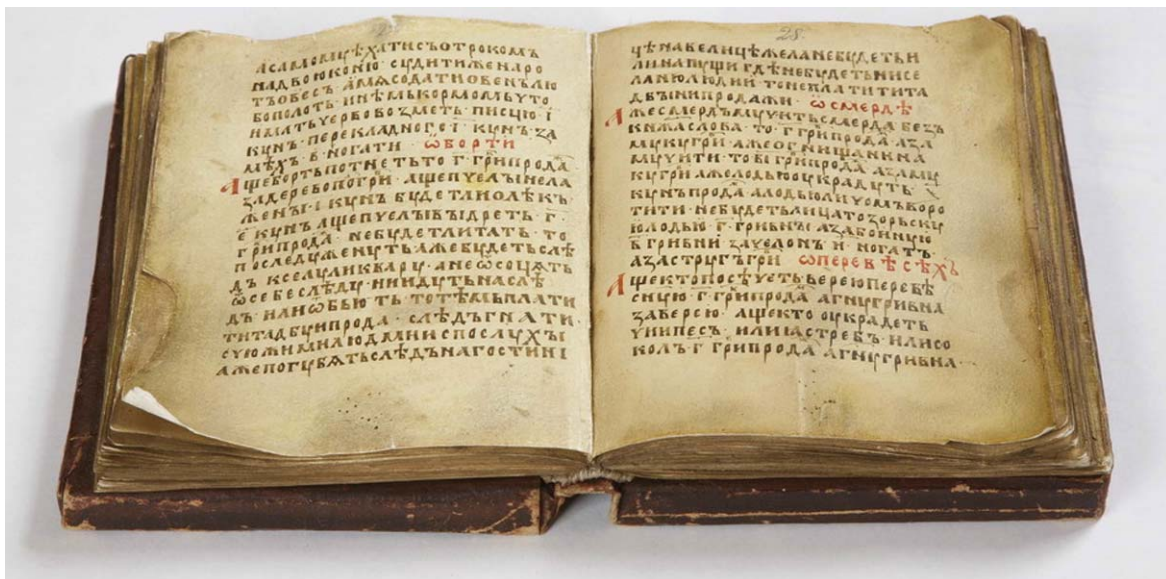 а самомѹ ѣхати съ отрокомъ
на двою коню · сути же на ро
тъ овесъ · а мѧсо дати овенъ лю
бо полоть · инѣмь кормомь ѹто
има ть черево возметь · писцю · і҃ ·
кѹнъ · перекладного · і҃ · кѹнъ · за
мѣхъ · в҃ · ногати · ѡ борти
Аще борть потнеть то · г҃ · гр҃и прода҃
за дерево пог҃ри · аще пчелы нела
жены · і҃ · кѹнъ · бѹдет ли олѣкъ ·
е҃ · кѹнъ · аще пчелы выдреть · г҃ ·
гр҃и прода҃ · не бѹдет ли тать · то
по следѹ женѹть аже бѹдеть слѣ
дъ к селѹ ли к варѹ · а не ѿсоцѧть
ѿ себе слѣдѹ · ни идѹть на слѣ
дъ или ѿбьють · то тѣмь плати
ти татбѹ и прода · слѣдъ гнати
с чюжими людми и с послѹхы
аже погѹбѧть слѣдъ на гостинь
28
цѣ на велицѣ же ла не бѹдеть и
ли на пѹщи гдѣ не бѹдеть ни се
ла ни людии · то не платити та
двы ни продажи · ѡ смердѣ
Аже смердъ мѹчить смерда безъ
кнжа слова · то · г҃ · гр҃и прода҃ · а за
мѹкѹ гр҃и · аже огнищанина
мѹчити · то ві҃ гр҃и прода҃ · а за мѹ
кѹ гр҃и · аже лодью ѹкрадѹть ·
кѹнъ прода҃ · а лодью лицомъ воро
тити · не бѹдеть ли лица то за морьскѹ
ю лодью · г҃ · гривны · а за боиную
в҃ гривни · за челонъ · и҃ · ногатъ ·
а за стрѹгъ гр҃и · ѡ перевѣсѣхъ
Аще кто посѣчеть верею перевѣ
снѹю · г҃ · гр҃и прода҃ · а г҃нѹ гривна
за вервю · аще кто ѹкрадеть
чии песъ · или ꙗстребъ · или со
колъ · г҃ · гр҃и прода҃ · а г҃нѹ гривна ·